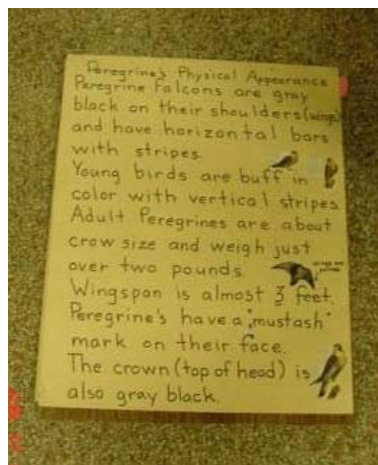 Peregrine's Physical Appearance
Peregrine Falcons are gray
black on their shoulders (wings)
and have horizontal bars
with stripes.
Young birds are buff in
color with vertical stripes
Adult Peregrines are about
crow size and weigh just
over two pounds
Wingspan is almost 3 feet.
Peregrine's have a "mustash"
mark on their face.
The crown (top of head) is
also gray black.